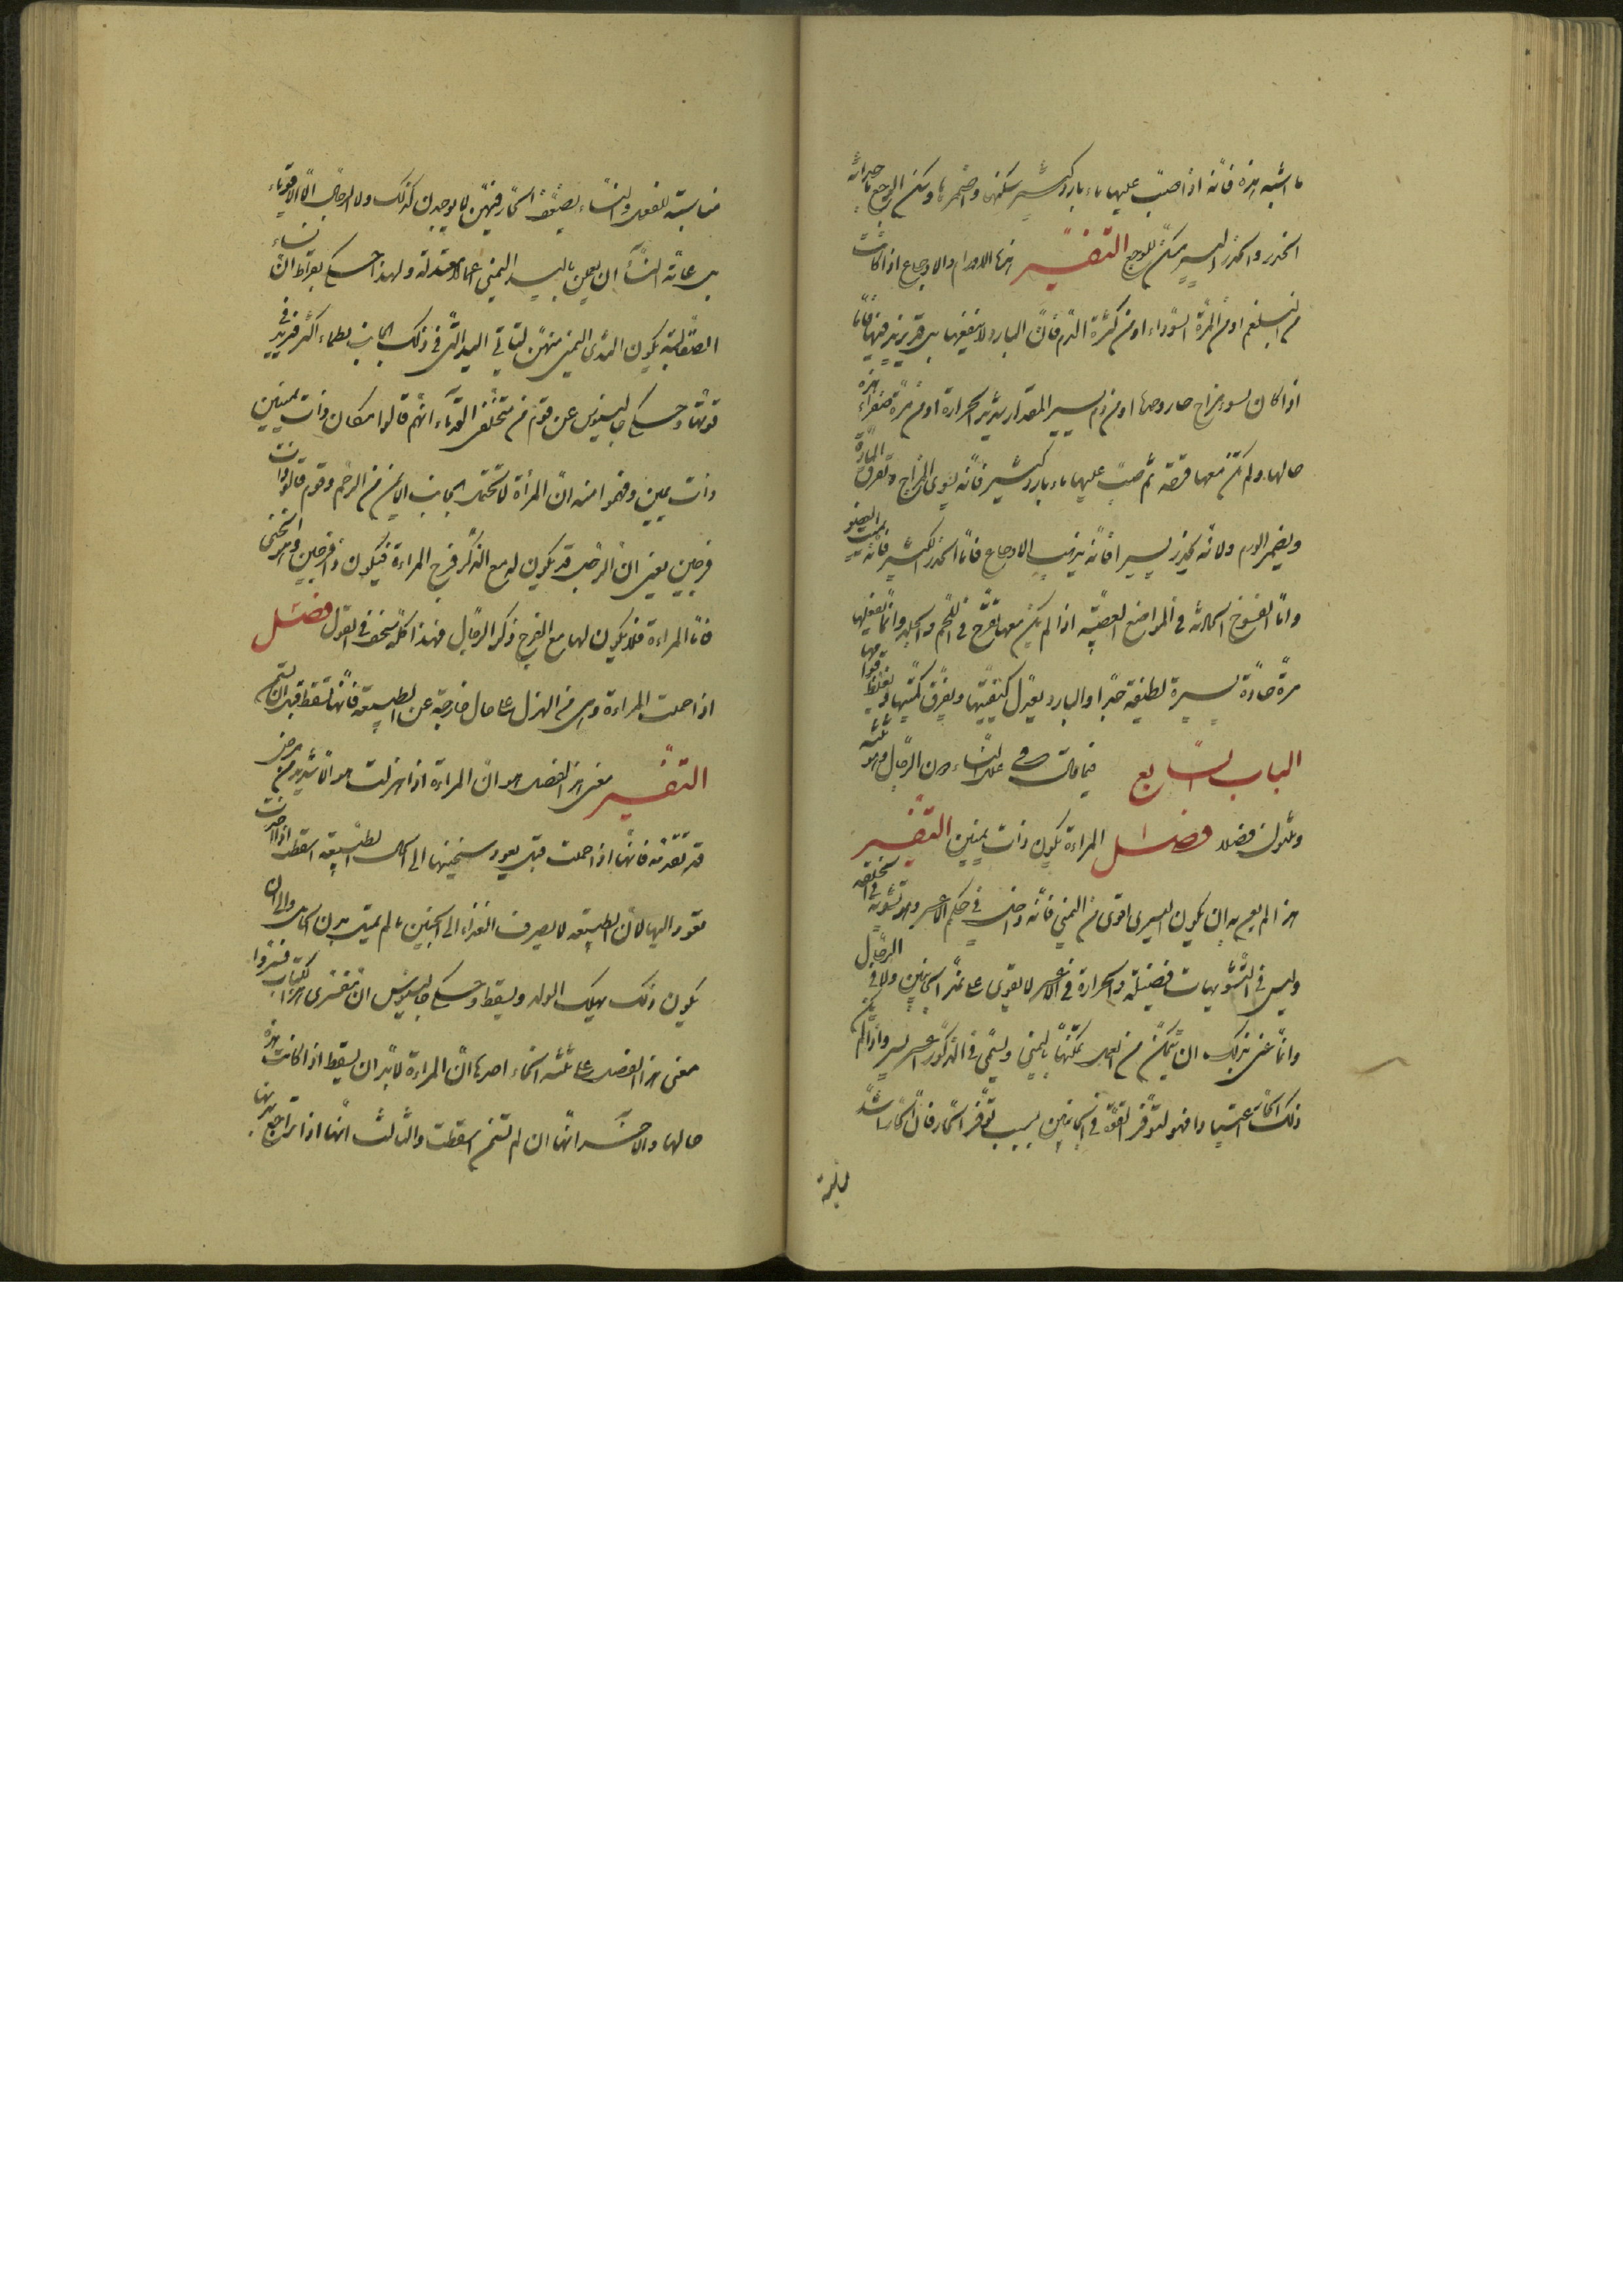 ما اشبه هذه فانه اذا صبّ عليها ماء بارد كثير سكنها واضمرها وسكن الوجع باحداثه
الخدر والخدر اليسير مسكّن للوجع التفسير هذه الاورام والاوجاع اذا كانت
من البلغم او من المرّة السوداء او من كثرة الدم فان البارد لا ينفعها بل قد يزيد فيها فامّا
اذا كان لسوء مزاج حار وحدها او من دم يسير المقدار شديد الحرارة او من مرّة صفراء هذه
حالها ولم تكن معها قرحة ثم صبّ عليها ماء بارد كثير فانه يسوى المزاج ويفرق المادّة
ويضمر الورم ولانه يخدر يسيرا فانه يذهب الاوجاع فامّا الخدر الكثير فانه يميت العضو
وامّا الفسوخ الحادثة فى المواضع العصبيّة اذا لم يكن معها تقرّح فى اللحم والجلد وانما تفعلها
مرّة حادّة يسيرة لطيفة جدّا والبارد يعدل كيفيّتها ويفرّق كميّتها ويغلظ قوامها
الباب السابع فيما قال فى علل النساء دون الرجال وهو ثلثة
وثلثون فصلا فصل المراءة لا يكون ذات يمينين التفسير
هذا لم يعن به ان يكون اليسرى اقوى من اليمنى فانه داخل فى حكم الاعسر وهو تشويه فى الخلقة
وليس فى التشويهات فضيلة والحرارة فى الاعسر لا يقوى على تدبير الجانبين ولا فى الرجال
وانما عنى بذلك ان يتمكن من العمل تمكّنها باليمنى ويسمّى فى الذكور اعسر يسر واذا لم يكن
ذلك اعتيادا فهو لتوفر القوّة فى الجانبين بسبب توفّر الحار فان الحار اشدّ
مناسبة للفعل والنساء يضعف الحار فيهنّ لا يوجدن كذلك ولا الرجال الا الاقوياء
بل غاية النساء ان يعملن باليد اليمنى اعمالا معتدلة ولهذا حكى بقراط ان نساء
الصقالبة يكوين الثدى اليمنى منهنّ لتاتى اليد التى فى ذلك الجانب بطعام اكثر فيزيد فى
قوتها وحكى جالينوس عن قوم من متخلفى القدماء انهم قالوا مكان ذات يمينين
ذات يمين وفهموا منه ان المرأة لا تحمل بالجانب الايمن من الرحم وقوم قالوا ذات
فرجين يعنى ان الرجل قد يكون له مع الذكر فرج المراءة فيكون ذا فرجين وهو الخنثى
فامّا المراءة فلا يكون لها مع الفرج ذكر الرجال فهذا كله سخف فى القول فصل
اذا حملت المراءة وهى من الهزل على حال خارجة عن الطبيعة فانها تسقط قبل ان تسمن
التفسير معنى هذا الفصل هو ان المراءة اذا هزلت هزالا شديدا من مرض
قد تقدمه فانها اذا حملت قبل يعود سخنتها الى الحال الطبيعية اسقطت اذا اخذت
تعود اليها لان الطبيعة لا يصرف الغذاء الى الجنين ما لم يمتل بدن الحامل والى ان
يكون ذلك يهلك الولد ويسقط وحكى جالينوس ان مفسرى هذا الكتاب فسّروا
معنى هذا الفصل على ثلثة انحاء احدها ان المراءة لا بد ان يسقط اذا كانت هذه
حالها والآخر انها ان لم تسمن اسقطت والثالث انها اذا تراجع بدنها
مناسبة